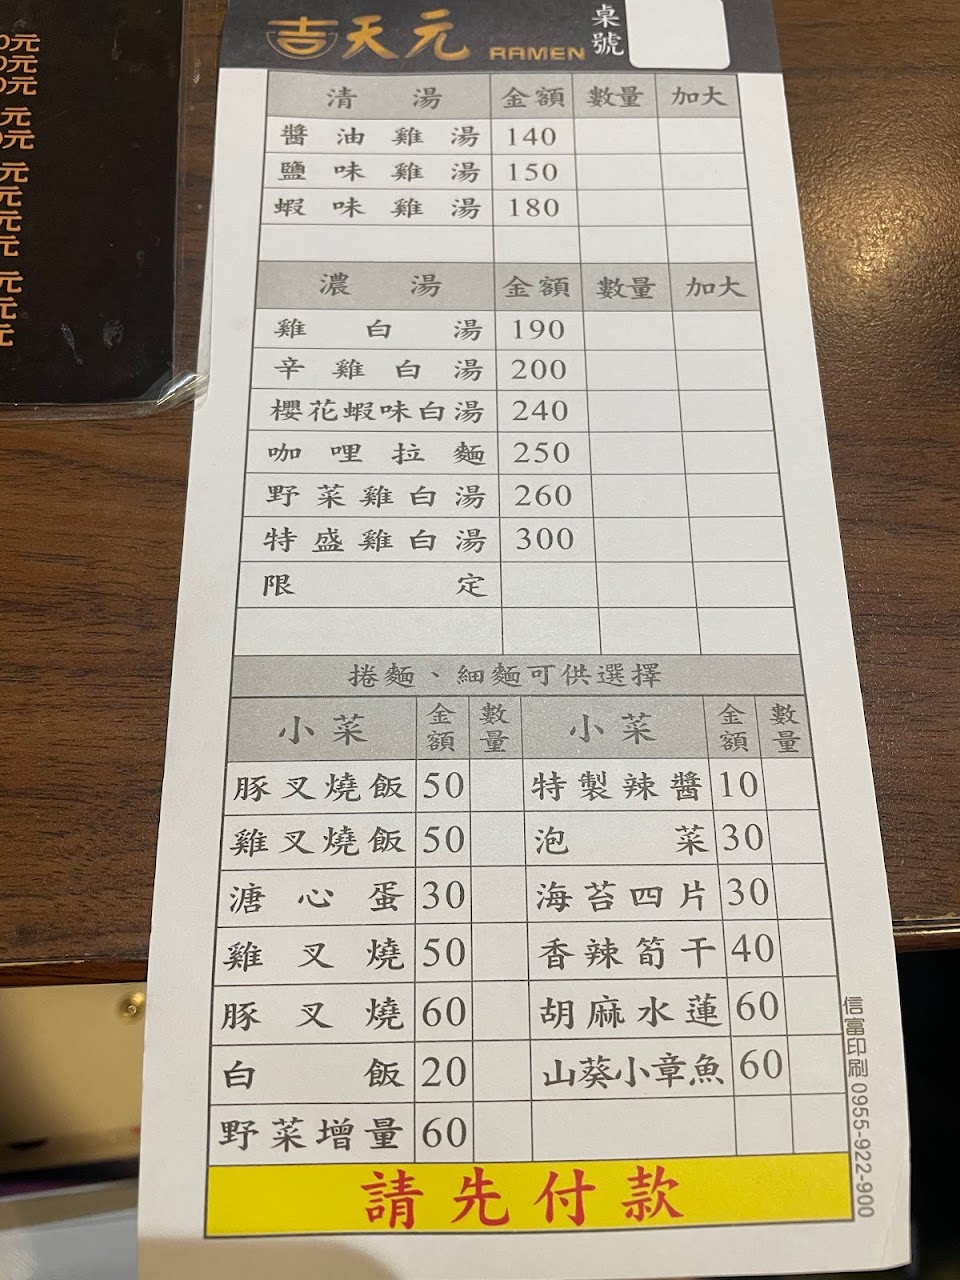 吉天元 RAMEN 桌號
清湯 金額 數量 加大
醬油雞湯 140
鹽味雞湯 150
蝦味雞湯 180
濃湯 金額 數量 加大
雞白湯 190
辛雞白湯 200
櫻花蝦味白湯 240
咖哩拉麵 250
野菜雞白湯 260
特盛雞白湯 300
限定
捲麵、細麵可供選擇
小菜 金額 數量 小菜 金額 數量
豚叉燒飯 50 特製辣醬 10
雞叉燒飯 50 泡菜 30
溏心蛋 30 海苔四片 30
雞叉燒 50 香辣筍干 40
豚叉燒 60 胡麻水蓮 60
白飯 20 山葵小章魚 60
野菜增量 60
請先付款
信富印刷 0955-922-900
0元
0元
0元
元
0元
元
元
元
元
元
元
元